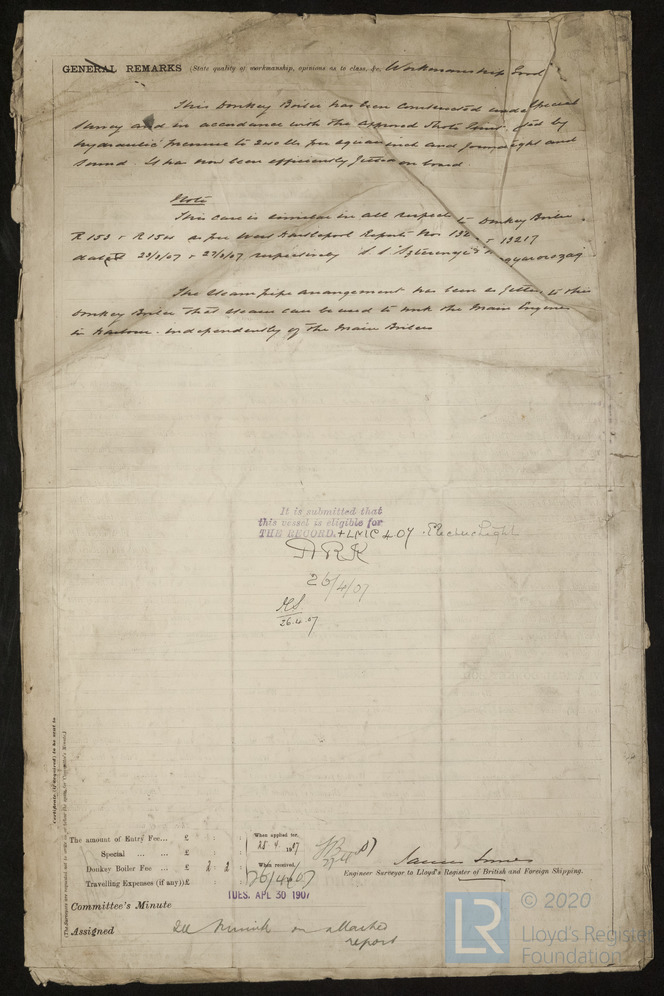 GENERAL REMARKS (State quality of workmanship, opinions as to class, &c. Workmanship Good
This Donkey Boiler has been Constructed under Special
Survey and in accordance with the approved
hydraulic pressure to lbs per square inch and found tight and
sound. It has now been efficiently fitted on board
Note
This Case is similar in all respects to Donkey Boiler
R 153 & R 154 as per West Hartlepool Reports Nos & 13217
dated 23/3/07 & 27/3/07 respectively
The Steam pipe arrangement has been so fitted to this
Donkey Boiler that Steam can be used to work the Main Engines
in Harbour independently of the Main Boilers
It is submitted that
this vessel is eligible for
THE RECORD. + LMC 4 07. Electric Light
26/4/07
26.4.07
Certificate (if required) to be sent to
(The Surveyors are requested not to write on or below the space for Committee's Minute.)
The amount of Entry Fee... £ : : When applied for,
Special ... ... £ : :
Donkey Boiler Fee ... £ 2 : 2 : When received,
Travelling Expenses (if any) £ : : 26/4/07
James
Engineer Surveyor to Lloyd's Register of British and Foreign Shipping.
TUES. APL 30 1907
Committee's Minute
Assigned See Minute on attached
report
LR
© 2020
Lloyd's Register
Foundation